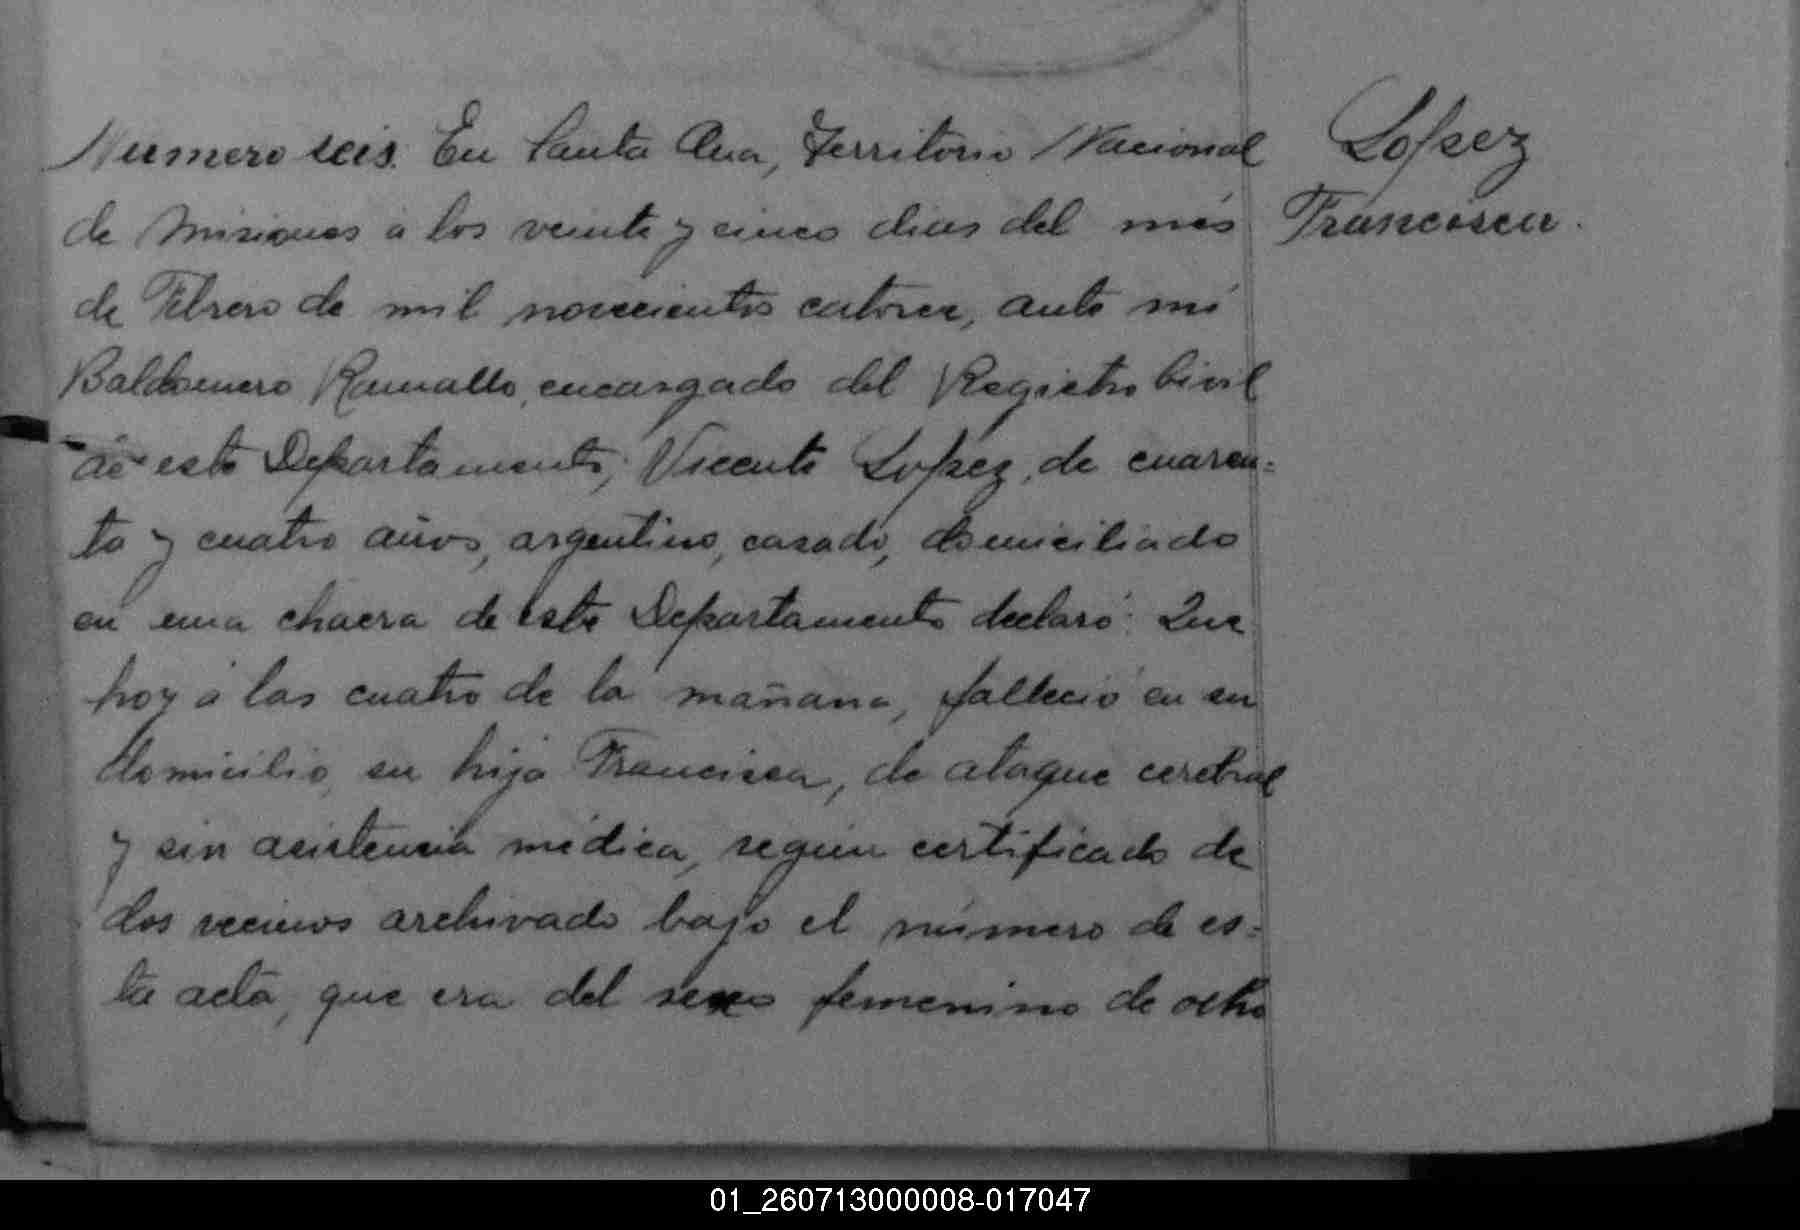 Numero seis. En Santa Ana, Territorio Nacional
de Misiones á los veinte y cinco dias del més
de Febrero de mil novecientos catorce, ante mí
Baldomero Ramallo, encargado del Registro Civil
de este Departamento, Vicente Lopez, de cuaren=
ta y cuatro años, argentino, casado, domiciliado
en una chacra de este Departamento declaró: Que
hoy á las cuatro de la mañana, falleció en su
domicilio, su hija Francisca, de ataque cerebral
y sin asistencia médica, según certificado de
dos vecinos archivado bajo el número de es=
ta acta, que era del sexo femenino de ocho
Lopez
Francisca.
01_260713000008-017047